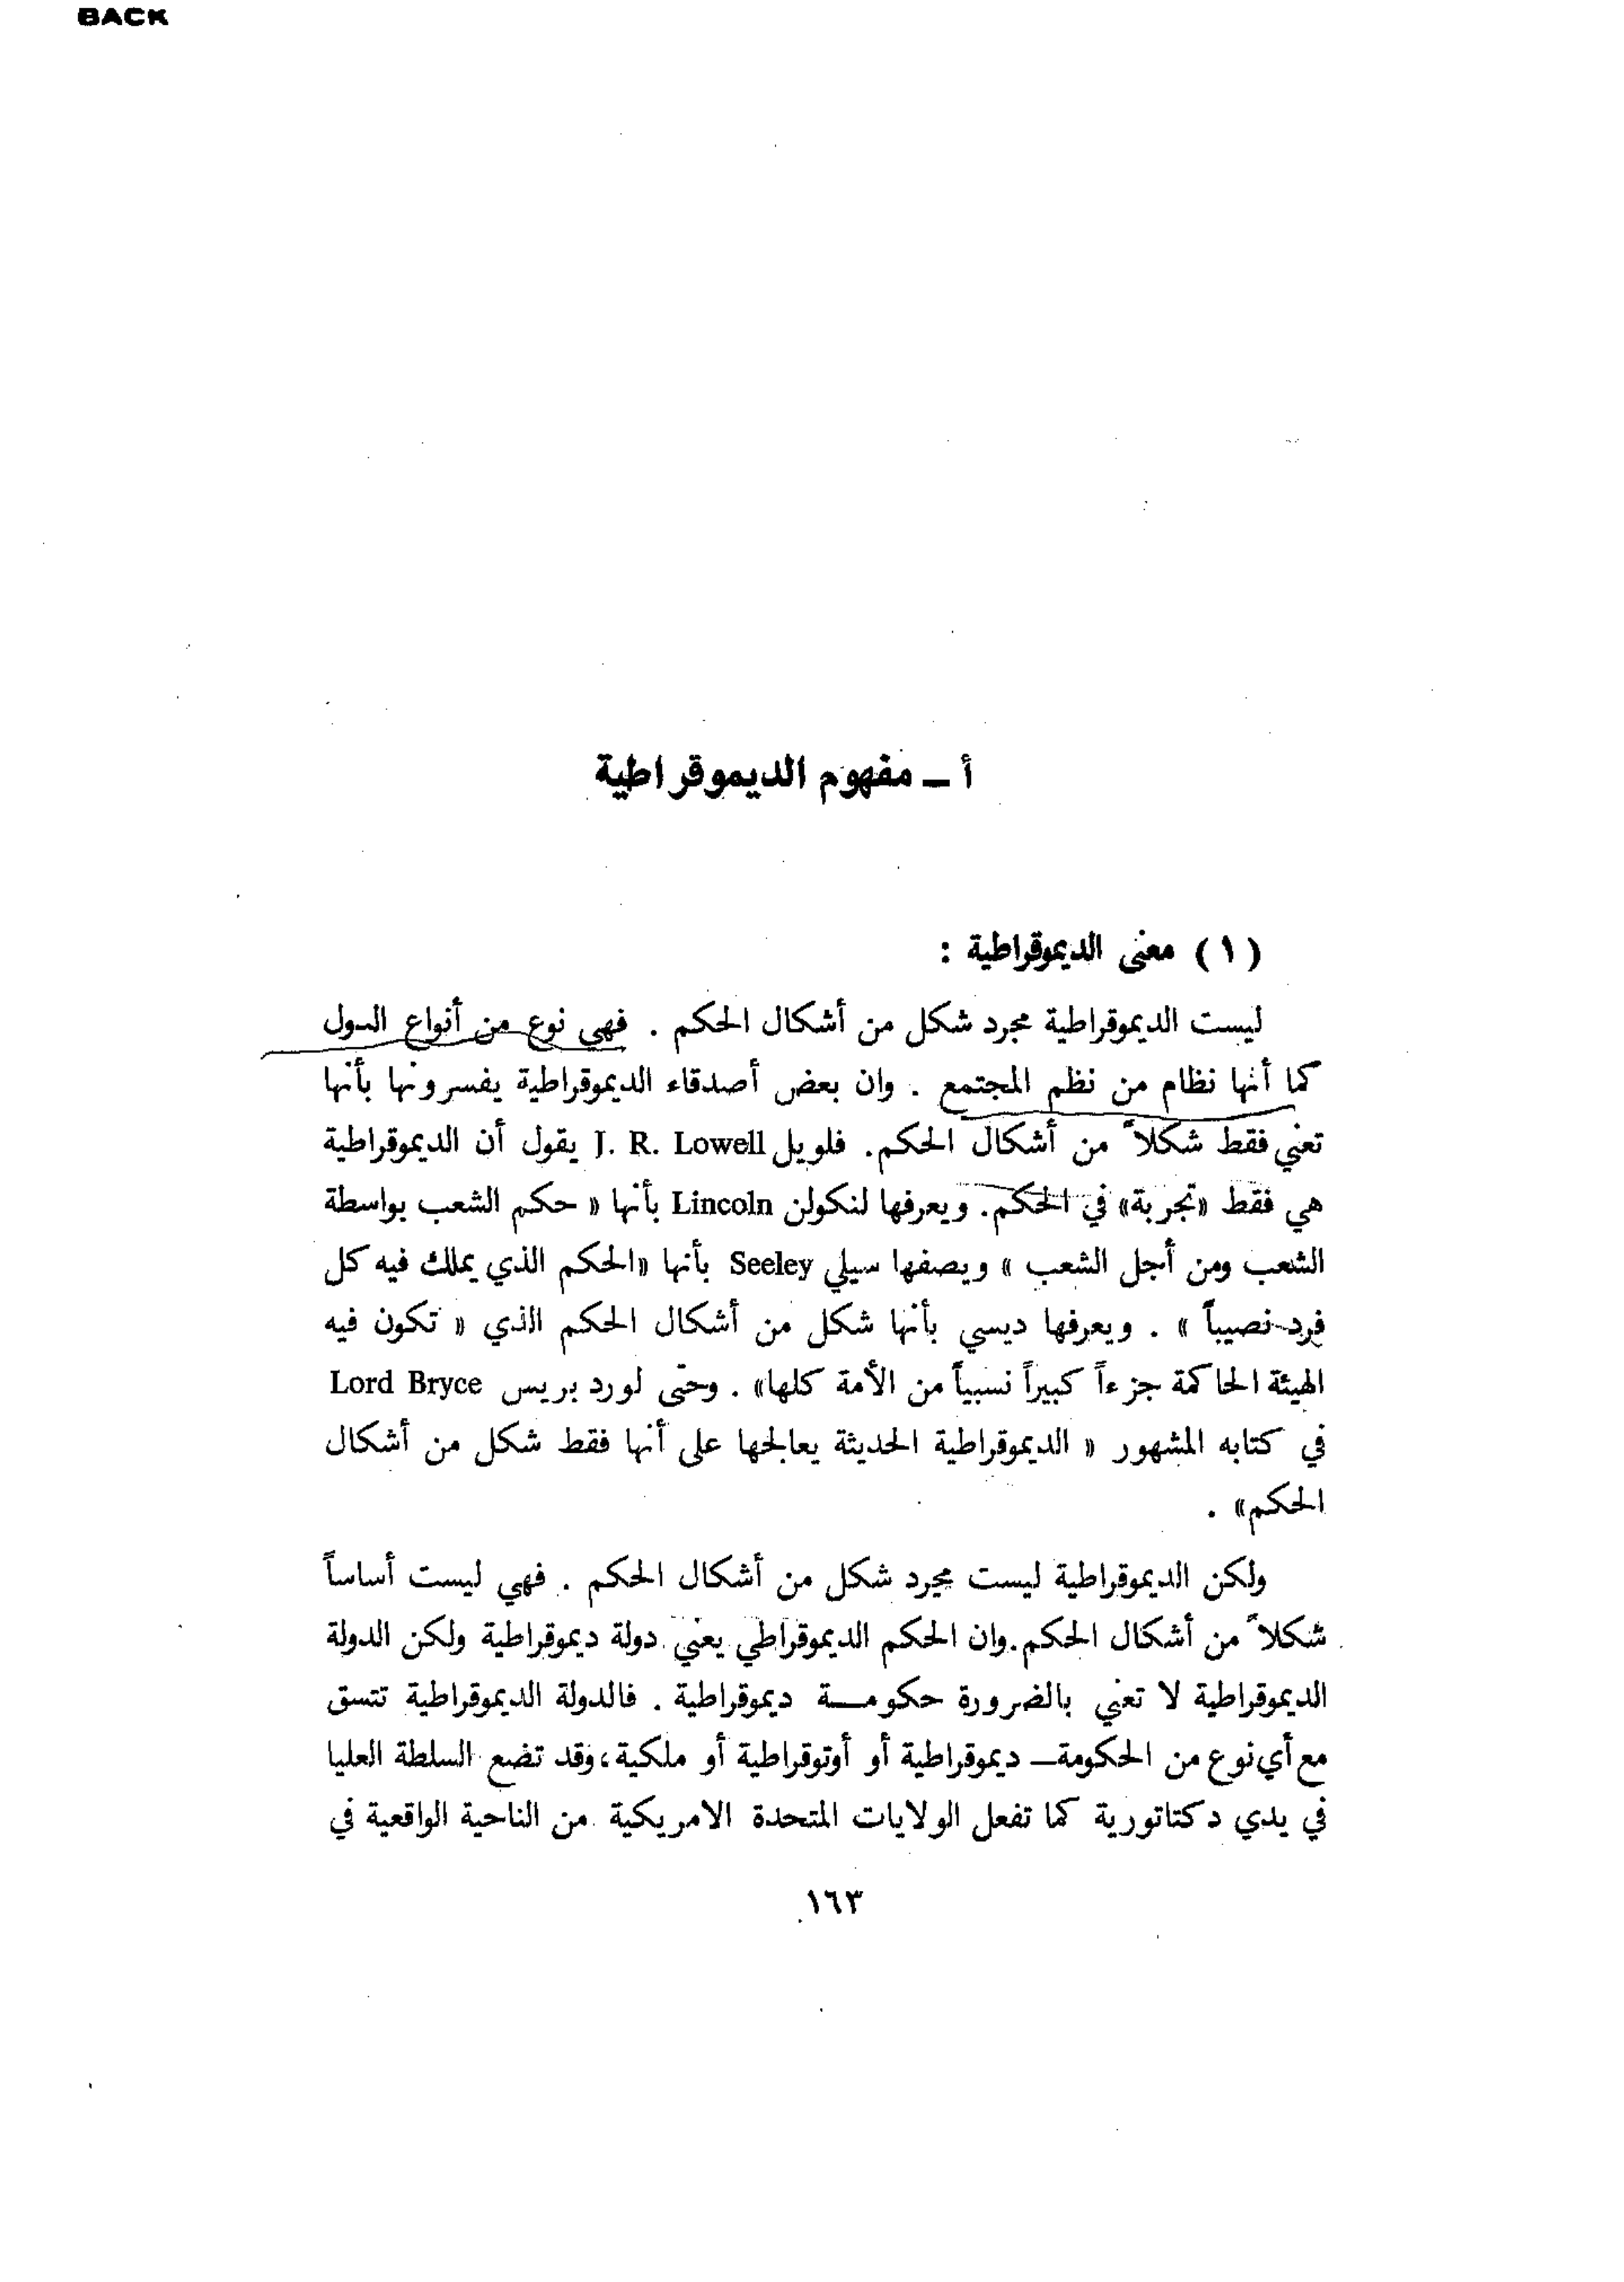 BACK
أ ــ مفهوم الديموقراطية
(١) معنى الديموقراطية :
ليست الديموقراطية مجرد شكل من أشكال الحكم . فهي نوع من أنواع الدول
كما أنها نظام من نظم المجتمع . وان بعض أصدقاء الديموقراطية يفسرونها بأنها
تعني فقط شكلاً من أشكال الحكم. فلويل J. R. Lowell يقول أن الديموقراطية
هي فقط «تجربة» في الحكم. ويعرفها لنكولن Lincoln بأنها « حكم الشعب بواسطة
الشعب ومن أجل الشعب » ويصفها سيلي Seeley بأنها «الحكم الذي يملك فيه كل
فرد نصيباً » . ويعرفها ديسي بأنها شكل من أشكال الحكم الذي « تكون فيه
الهيئة الحاكمة جزءاً كبيراً نسبياً من الأمة كلها» . وحتى لورد بريس Lord Bryce
في كتابه المشهور « الديموقراطية الحديثة يعالجها على أنها فقط شكل من أشكال
الحكم» .
ولكن الديموقراطية ليست مجرد شكل من أشكال الحكم . فهي ليست أساساً
شكلاً من أشكال الحكم. وان الحكم الديموقراطي يعني دولة ديموقراطية ولكن الدولة
الديموقراطية لا تعني بالضرورة حكومـــة ديموقراطية . فالدولة الديموقراطية تتسق
مع أي نوع من الحكومة ــ ديموقراطية أو أوتوقراطية أو ملكية، وقد تضع السلطة العليا
في يدي دكتاتورية كما تفعل الولايات المتحدة الامريكية من الناحية الواقعية في
١٦٣